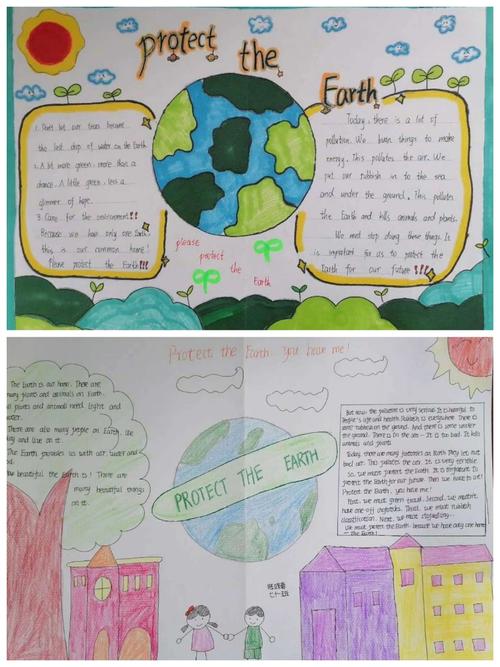 protect the Earth
1. Don't let our tears become
the last drop of water on the Earth
2. A bit more green, more than a
chance. A little green, less a
glimmer of hope.
3. Care for the environment!!!
Because we have only one Earth,
this is our common home!
Please protect the Earth!!!
please
protect
the
Earth
Today, there is a lot of
pollution. We burn things to make
energy. This pollutes the air. We
put our rubbish in to the sea
and under the ground. This pollutes
the Earth and kills animals and plants.
We must stop doing these things. It
is important for us to protect the
Earth for our future!!!
Protect the Earth you hear me!
The Earth is our home. There are
many plants and animals on Earth.
plants and animals need light and
water.
There are also many people on Earth. We
and live on it.
The Earth provides us with air, water and
beautiful the Earth is! There are
many beautiful things
on it.
PROTECT THE EARTH
But now the pollution is very serious. It is harmful to
people's life and health. Rubbish is everywhere. There is
some rubbish on the ground. And there is some under
the ground. There is in the air
animals and plants.
Today, there are many factories on Earth. They let out
bad air. This pollutes the air. It is very terrible.
So, we must protect the Earth. It is important to
protect the Earth for our future. Then we have to do!
Protect the Earth, you have me!
First, we must green travel. Second, we must
have one-off chopsticks. Third, we must rubbish
classification. Next, we must
We must protect the Earth because we have only one home
— the Earth!
七(1)班